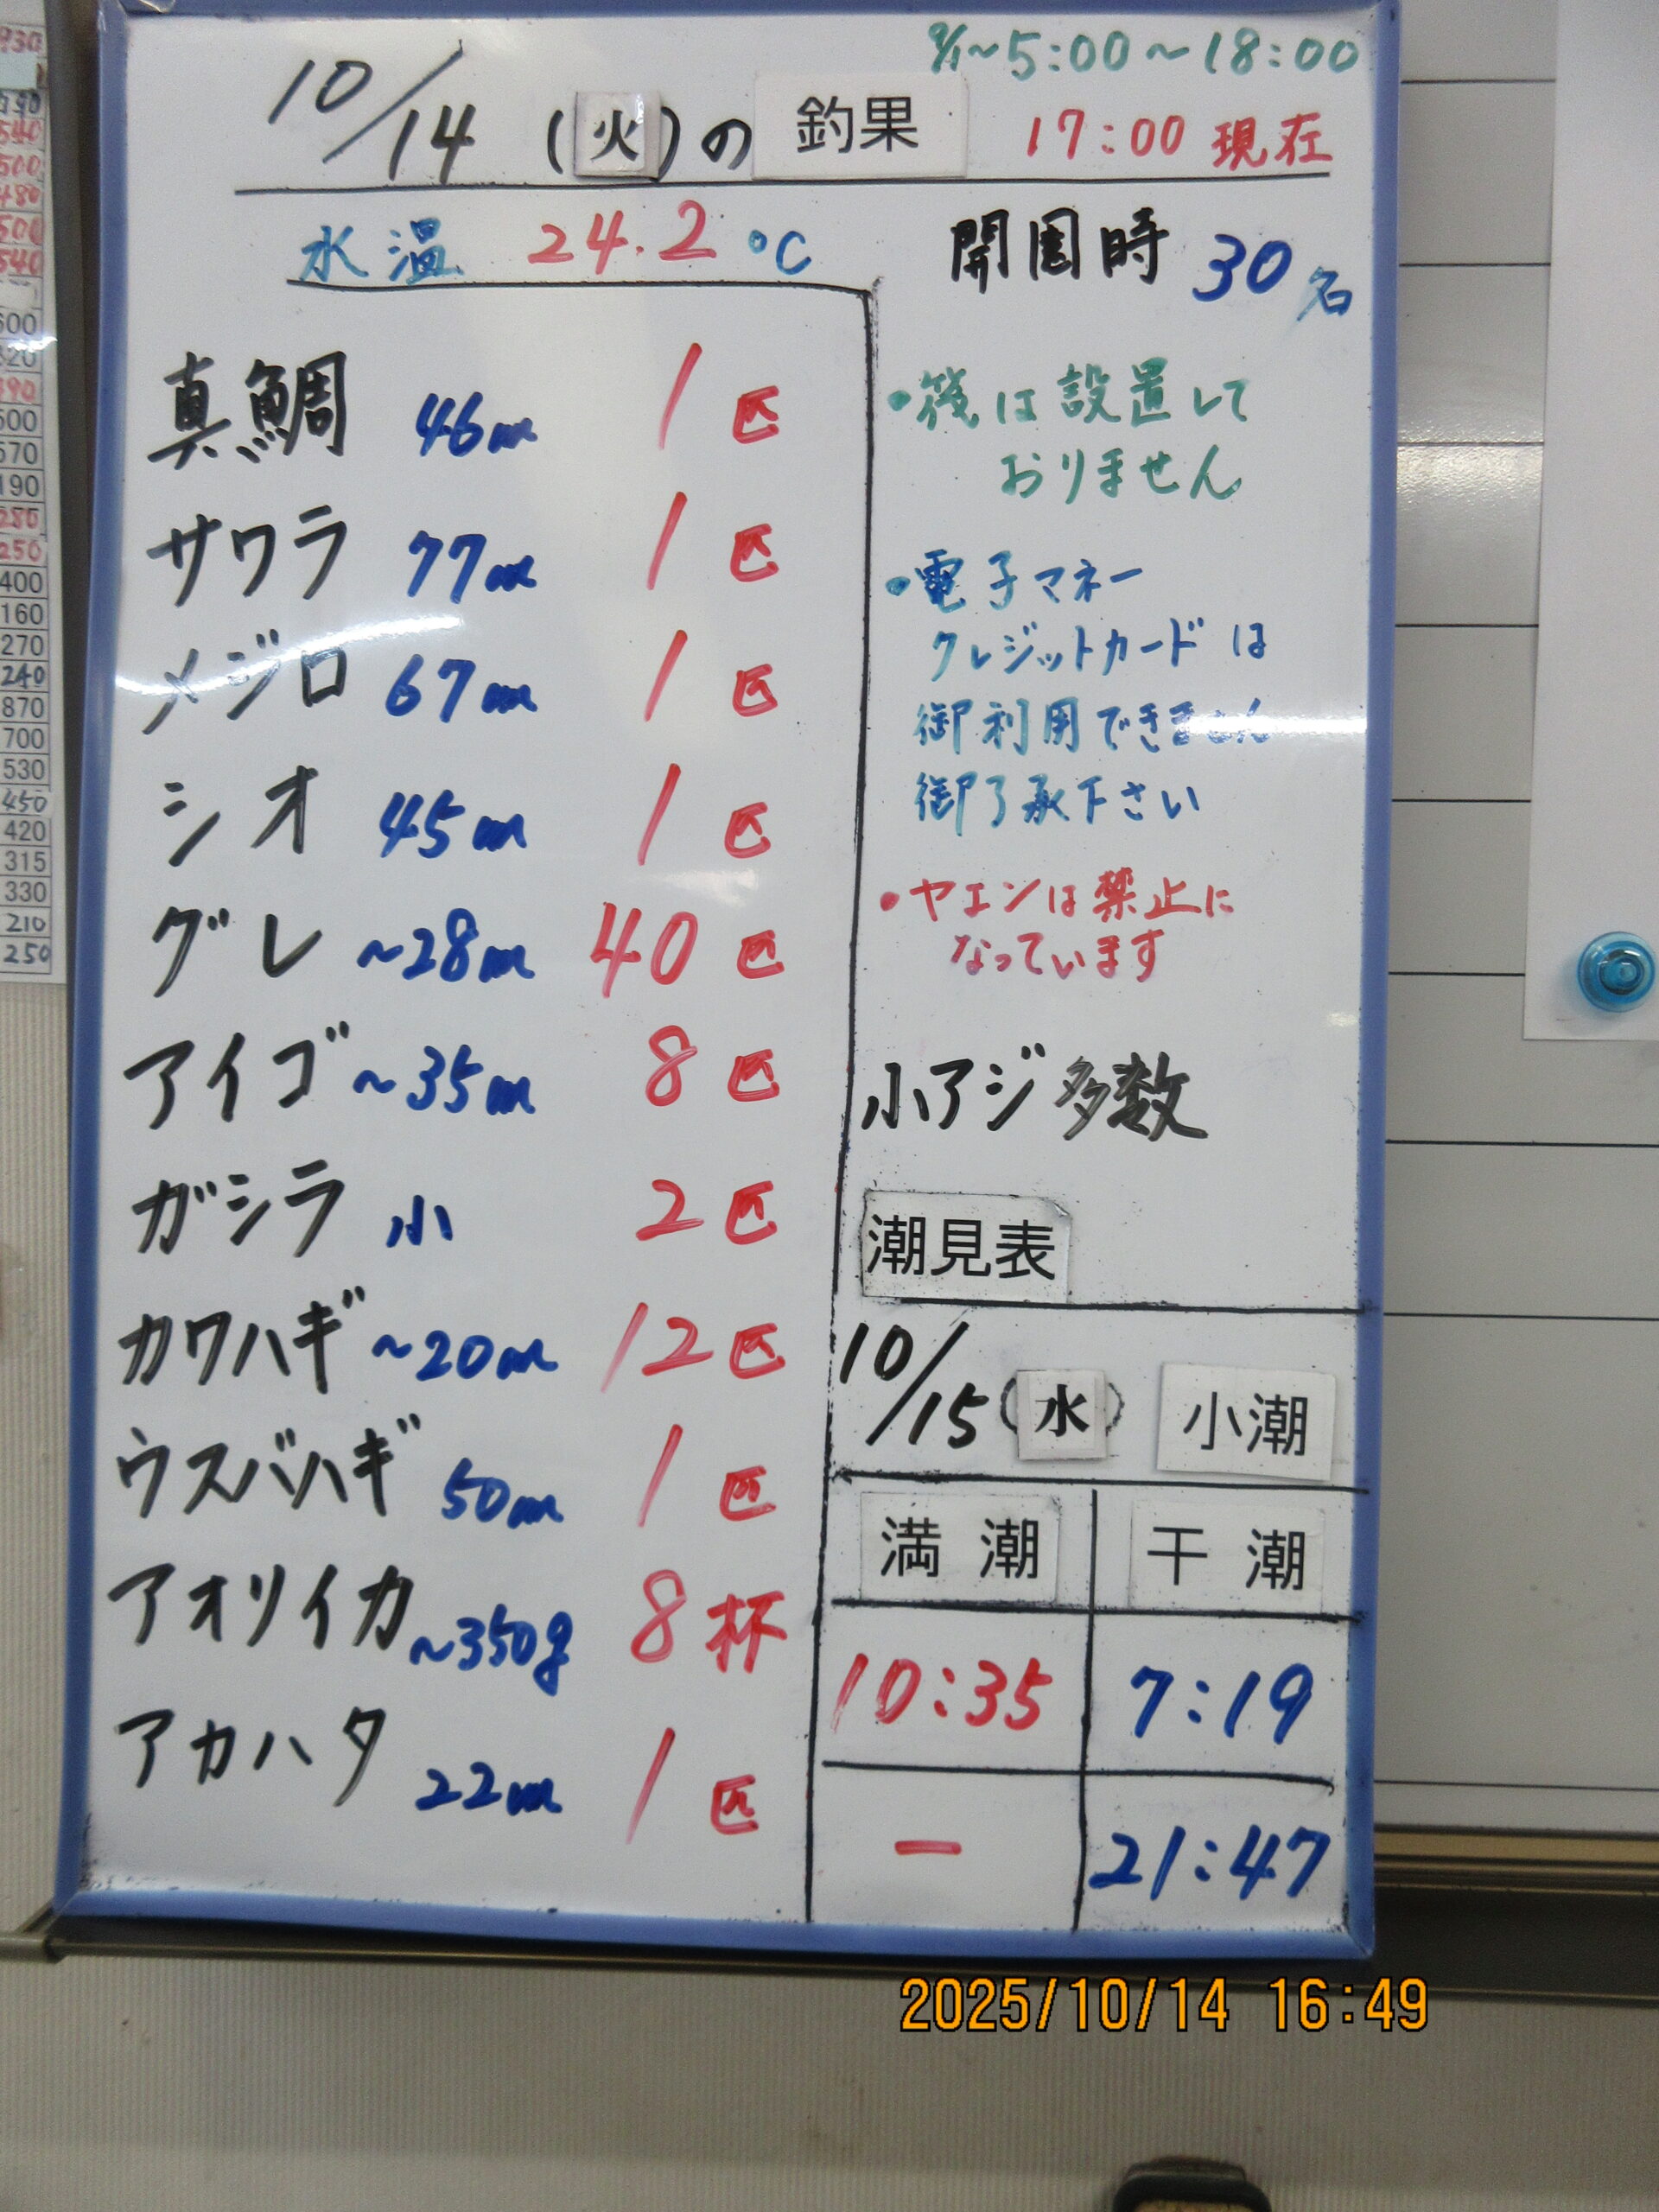 9/1~5:00~18:00
10/14(火)の 釣果 17:00 現在
水温 24.2℃ 開園時 30名
真鯛 46cm 1匹
サワラ 77cm 1匹
メジロ 67cm 1匹
シオ 45cm 1匹
グレ ~28cm 40匹
アイゴ ~35cm 8匹
ガシラ 小 2匹
カワハギ ~20cm 12匹
ウスバハギ 50cm 1匹
アオリイカ ~350g 8杯
アカハタ 22cm 1匹
・筏は設置して
おりません
・電子マネー
クレジットカードは
御利用できません
御了承下さい
・ヤエンは禁止に
なっています
小アジ多数
潮見表
10/15(水) 小潮
満潮 干潮
10:35 7:19
ー 21:47
2025/10/14 16:49
930
540
500
480
500
540
600
320
390
500
570
190
280
250
400
160
270
240
870
700
530
450
420
315
330
210
250